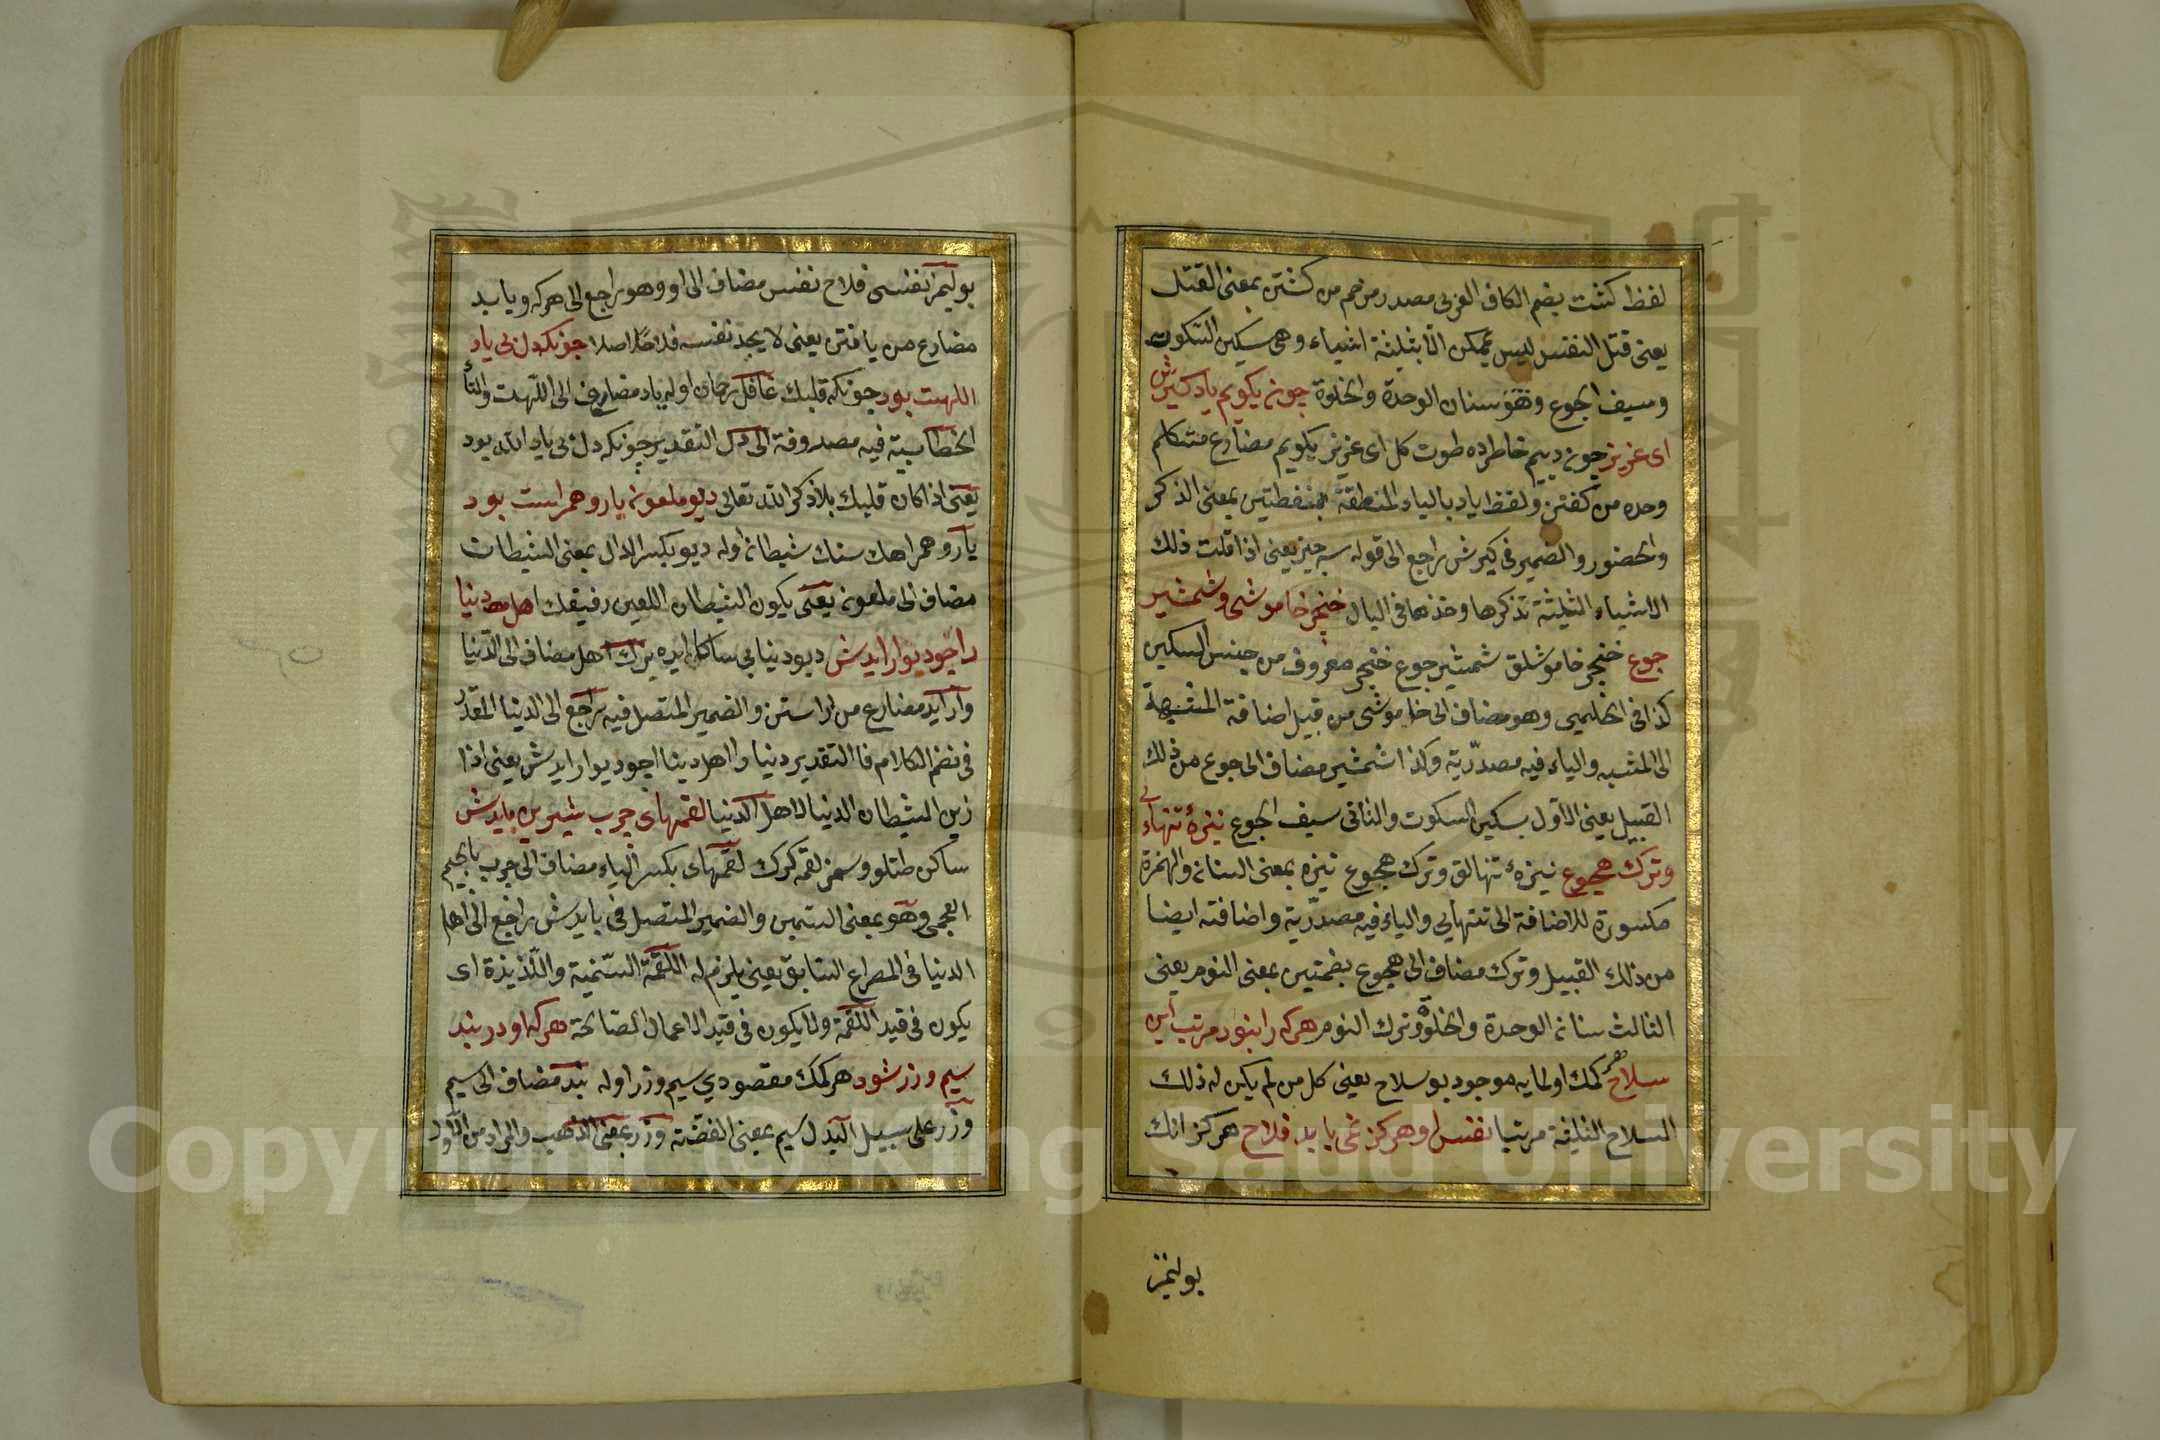 لفظ كشت بضم الكاف العربى مصدر مرخم من كشتن بمعنى القتل
يعنى قتل النفس ليس بممكن الا بثلثة اشياء وهى سكين السكوت
وسيف الجوع وسنان الوحدة والخلوة چون بكويم ياد كيرش
اى عزيز چون دييم خاطرده طوت كل اى عزيز بكويم مضارع متكلم
وحده من كفتن ولفظ ياد بالياء المنطقة بنقطتين بمعنى الذكر
والحضور والضمير فى كيرش راجع الى قوله سه چيز يعنى اذا قلت ذلك
الاشياء الثلثة تذكرها وخذها فى البال خنجر خاموشى وشمشير
جوع خنجر خاموشلق شمشير جوع خنجر معروف من جنس السكين
كذا فى الحليمى وهو مضاف الى خاموشى من قبيل اضافة المشبهة
الى المشبه والياء فيه مصدرية وكذا شمشير مضاف الى جوع من ذلك
القبيل يعنى الاول سكين السكوت والثانى سيف الجوع نيزهٔ تنهايى
وترك هجوع نيزهٔ تنهالق وترك هجوع نيزه بمعنى السنان والهمزة
مكسورة للاضافة الى تنهايى والياء فيه مصدرية واضافته ايضا
من ذلك القبيل وترك مضاف الى هجوع بضمتين بمعنى النوم يعنى
الثالث سنان الوحدة والخلوة وترك النوم هركه را نبود مرتب اين
سلاح هر كمك اولمايه موجود بو سلاح يعنى كل من لم يكن له ذلك
السلاح الثلثة مرتبا نفس او هركز نمى يابد فلاح هركز انك
بولنمز
بولنمز نفسى فلاح نفس مضاف الى او وهو راجع الى هركه ويابد
مضارع من يافتن يعنى لا يجد نفسه فلاحًا اصلا چونكه دل بى ياد
اللهت بود چونكه قلبك غافل رحمان اوله ياد مضاف الى اللهت والتأ
الخطابية فيه مصروفة الى دل التقدير چونكه دل بى ياد الله بود
يعنى اذا كان قلبك بلا ذكر الله تعالى ديو ملعون يار وهمراهت بود
يار وهمراهك سنك شيطان اوله ديو بكسر الدال بمعنى الشيطان
مضاف الى ملعون يعنى يكون الشيطان اللعين رفيقك اهل دنيا
را چو ديو ارايدش ديو دنيايى ساكا ايده برك اهل مضاف الى الدنيا
وآرايد مضارع من اراستن والضمير المتصل فيه راجع الى الدنيا المقدر
فى نضم الكلام فا التقدير دنيا را اهل دنيا چو ديو ارايدش يعنى اذا
زين الشيطان الدنيا لاهل الدنيا لقمهاى چرب شيرين بايدش
ساكن طتلو وسمز لقمه كرك لقمهاى بكسر الياء مضاف الى چرب بالجيم
العجمى وهو بمعنى السمين والضمير المتصل فى بايدش راجع الى اهل
الدنيا فى المصراع السابق يعنى يلزم له اللقمة السمنية واللذيذة اى
يكون فى قيد اللقمة ولا يكون فى قيد الاعمال الصالحة هركه او در بند
سيم وزر شود هر كمك مقصودى سيم وزر اوله بند مضاف الى سيم
وزر على سبيل البدل سيم بمعنى الفضة وزر بمعنى الذهب والمراد من الاول
Copyright © King Saud University